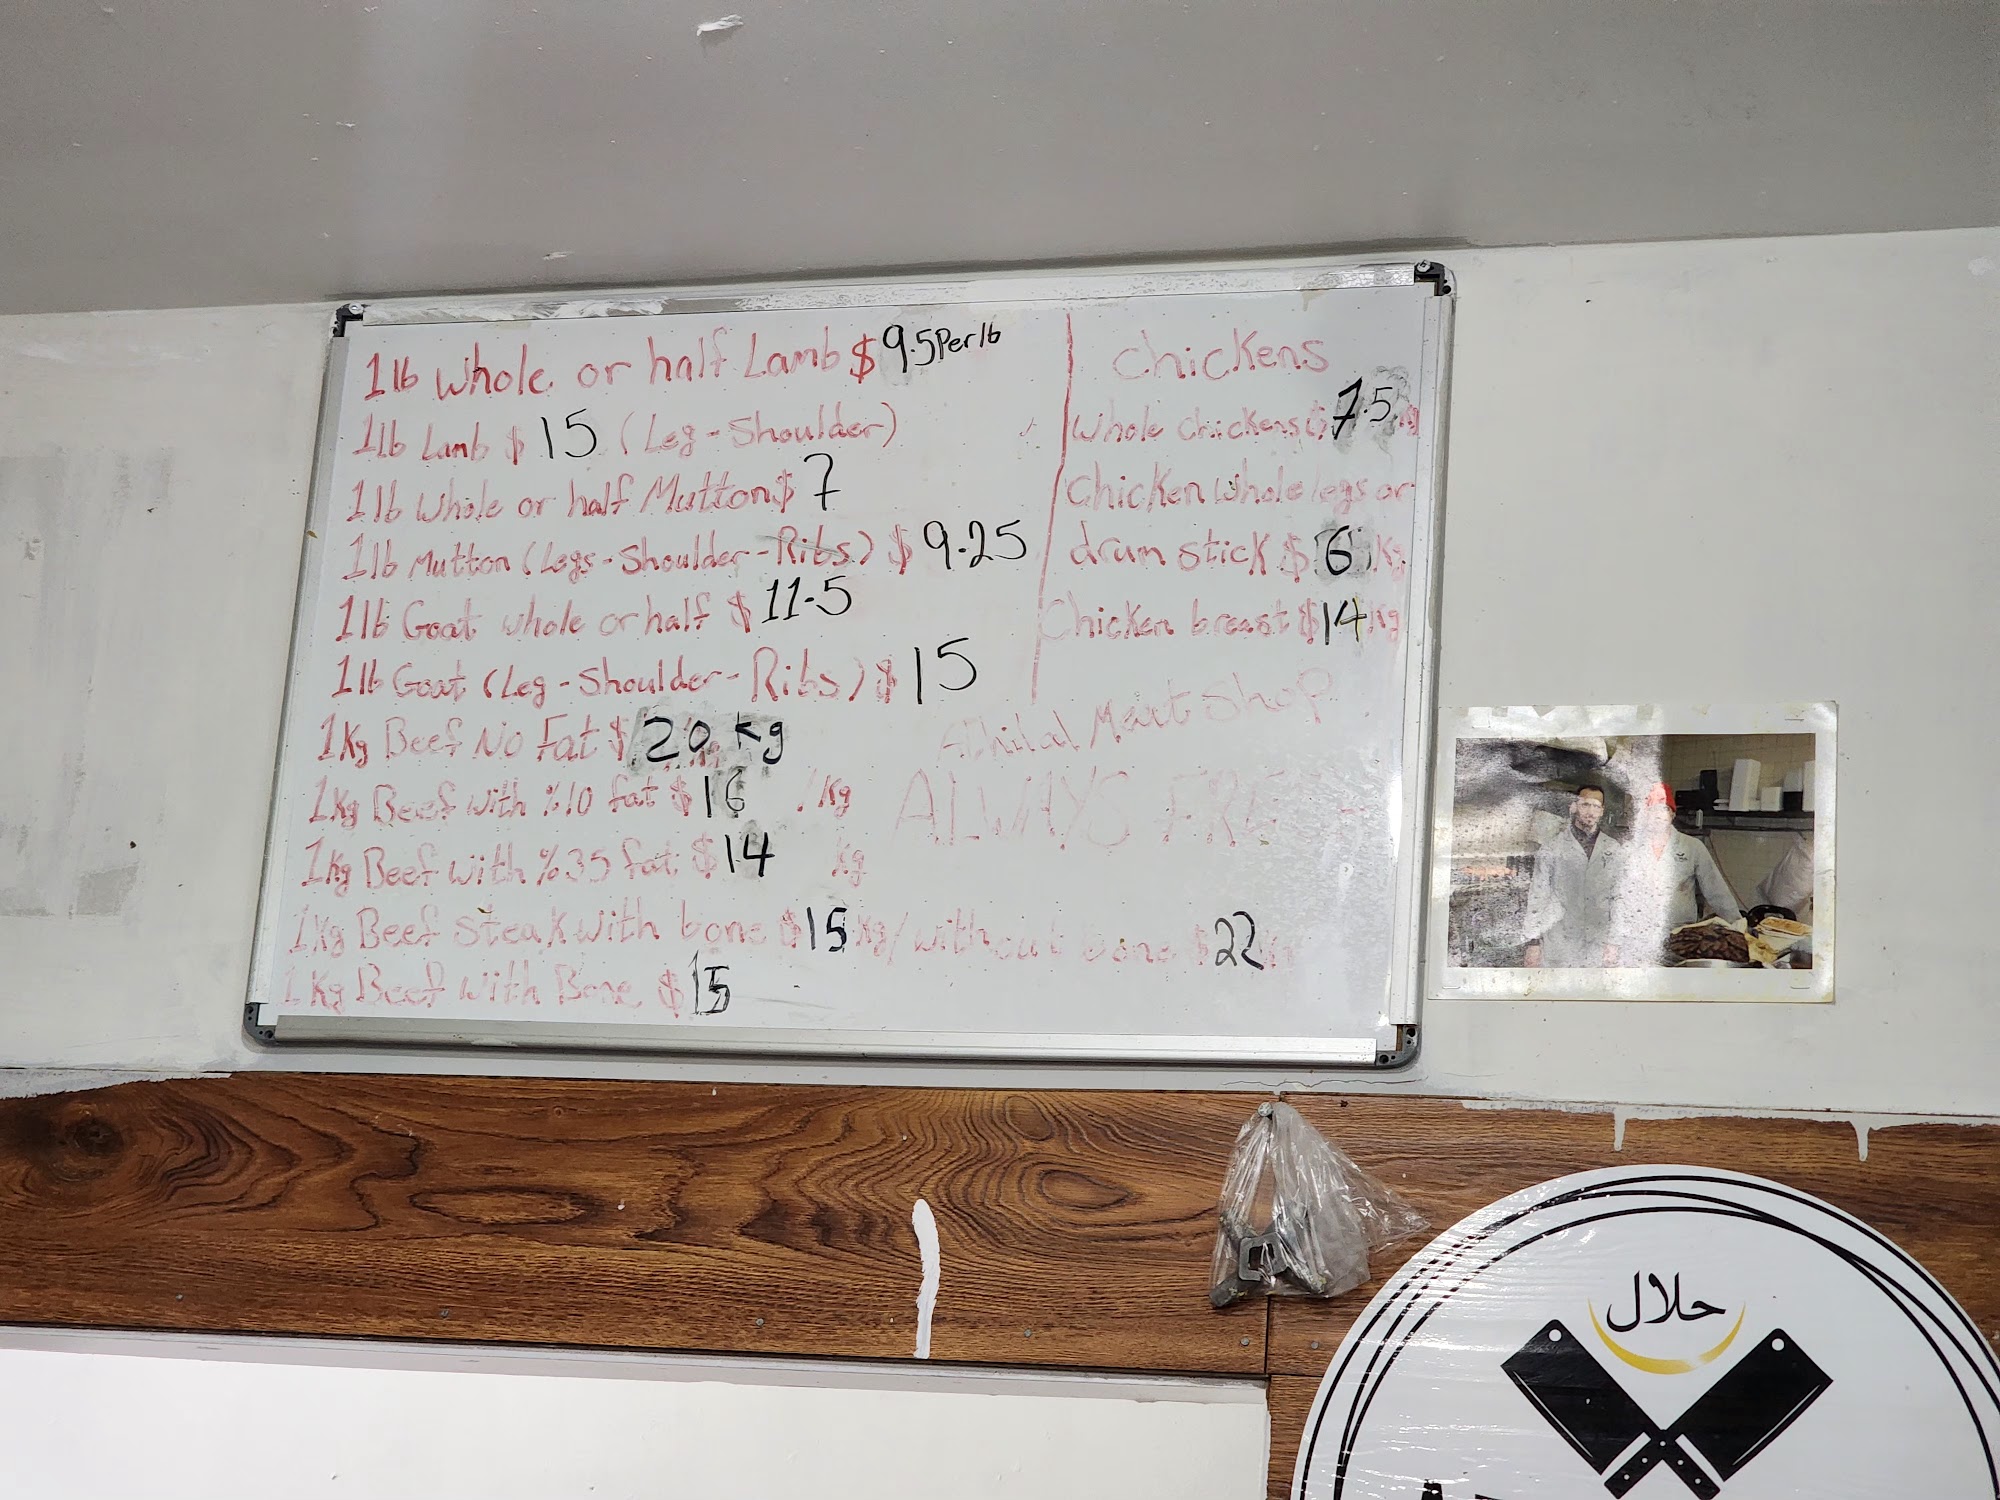 1lb Whole or half Lamb $ 9.5 Per lb
1lb Lamb $ 15 (Leg - Shoulder)
1lb Whole or half Mutton $ 7
1lb Mutton (Legs - Shoulder - Ribs) $ 9.25
1lb Goat whole or half $ 11.5
1lb Goat (Leg - Shoulder - Ribs) $ 15
1Kg Beef No Fat $ 20 kg
1Kg Beef with %10 fat $ 16 /Kg
1Kg Beef with %35 fat $ 14 kg
1Kg Beef Steak with bone $ 15 kg / without bone $ 22 Kg
1Kg Beef with Bone $ 15
Chickens
Whole chickens $ 7.5 Kg
Chicken whole legs or
drum stick $ 6 Kg
Chicken breast $ 14 Kg
Alhilal Meat Shop
ALWAYS
حلال